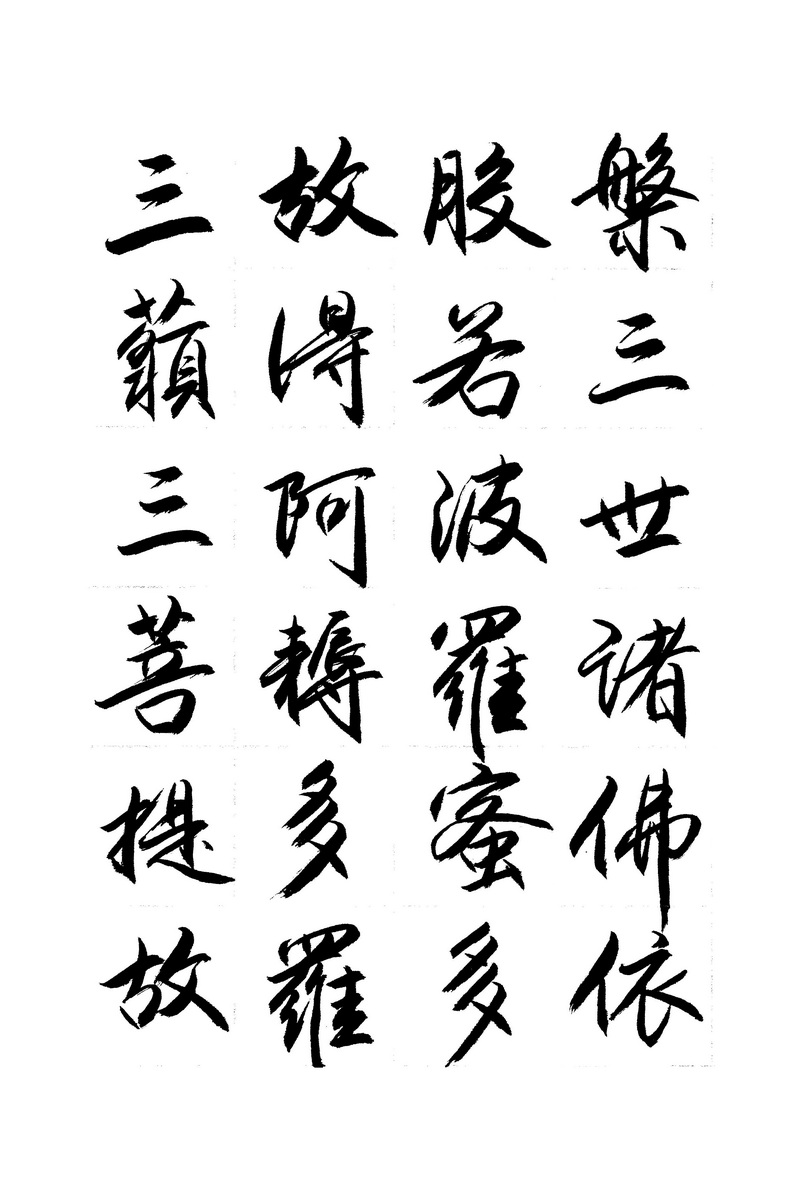 槃三世諸佛依
般若波羅蜜多
故得阿耨多羅
三藐三菩提故